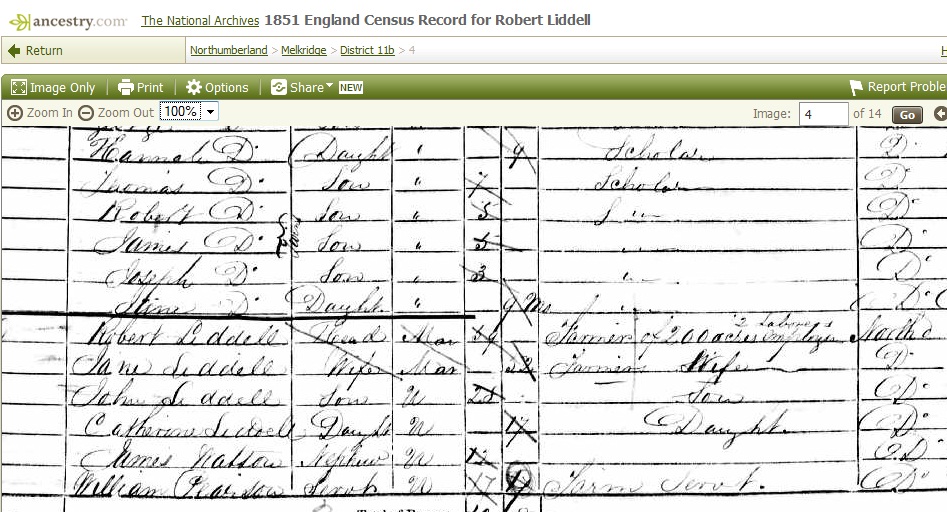 ancestry.com The National Archives 1851 England Census Record for Robert Liddell
Return Northumberland > Melkridge > District 11b > 4 H
Image Only Print Options Share NEW Report Proble
Zoom In Zoom Out 100% Image: 4 of 14 Go
Hannah Do Daught " 9 Scholar Do
Thomas Do Son " 7 Scholar Do
Robert Do Son " 5 Do
James Do Son " 5 " Do
Joseph Do Son " 3 " Do
Do Daught " 9 Mo Do
Robert Liddell Head Mar Farmer of 200 acres employing 2 Labourers North'd
Jane Liddell Wife Mar Farmers Wife Do
John Liddell Son U Son Do
Catherine Liddell Daught U 17 Daught. Do
James Watson Nephew U Do
William Pearson Servt U 17 Farm Servt. Do